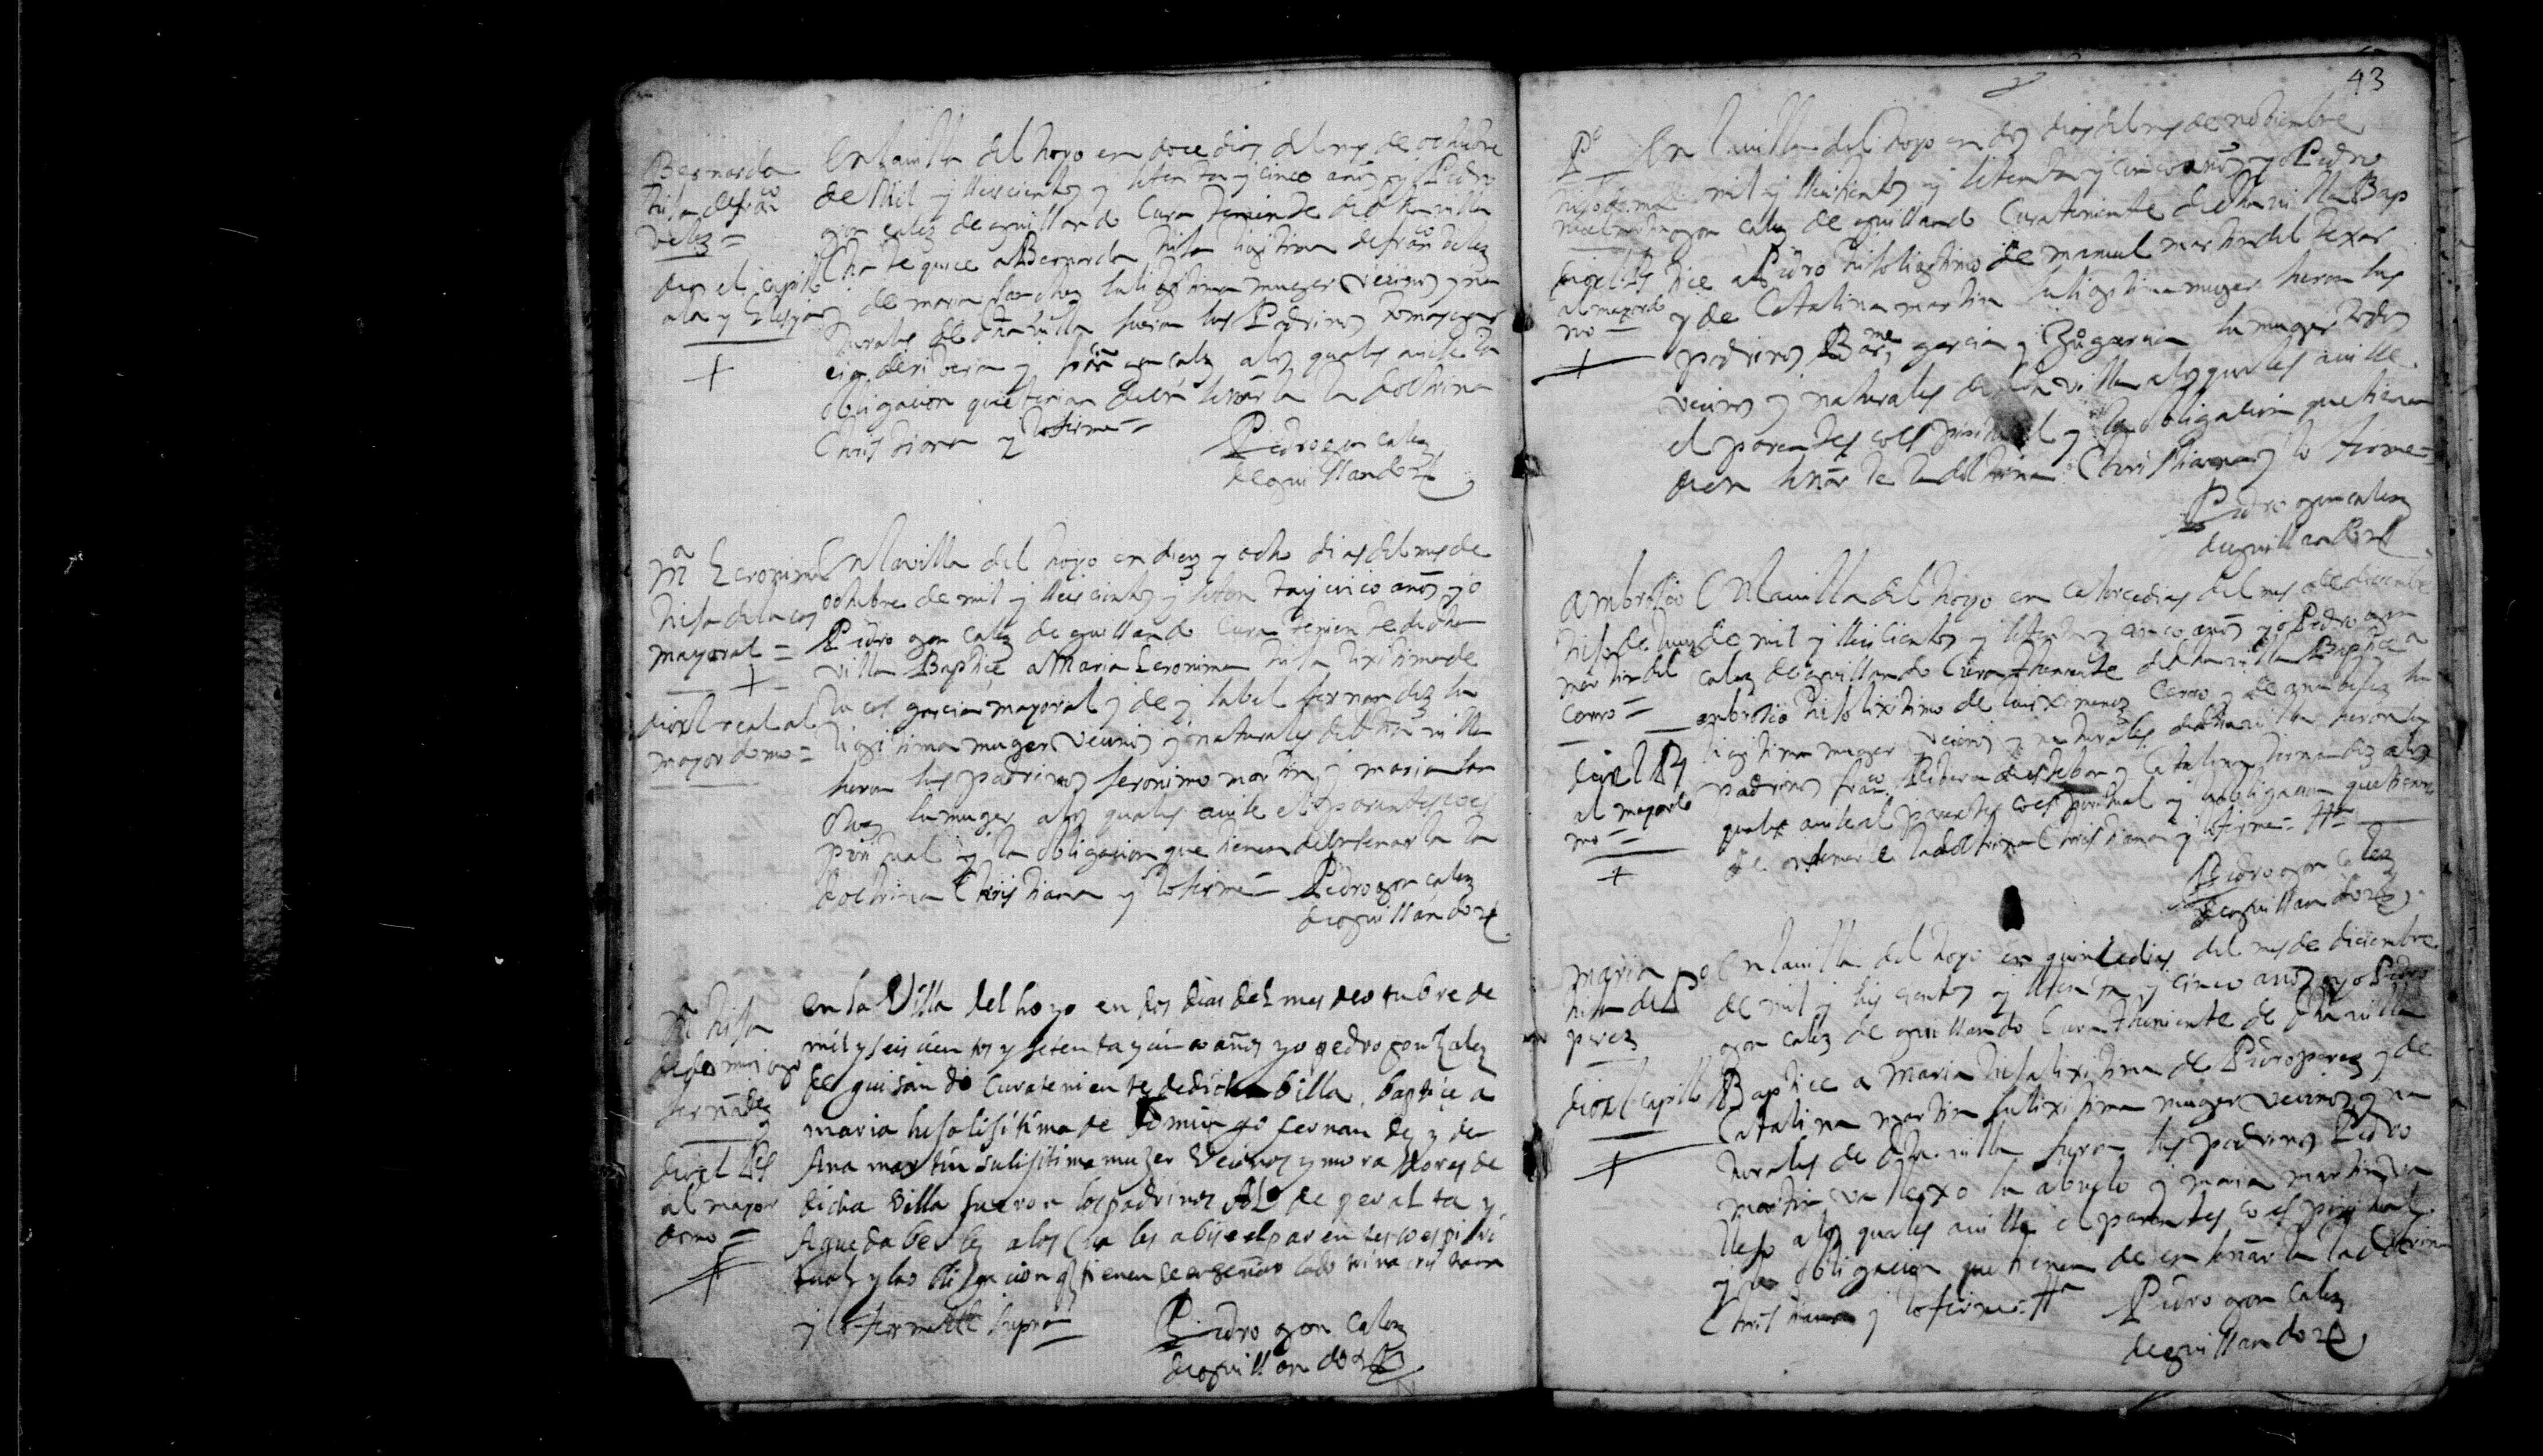 Bernarda
hija de fran^co
velez =
dio el capillo
ala yglesia
+
En la villa del hoyo en doce dias del mes de octubre
de Mil y seiscientos y setenta y cinco años yo Pedro
gonçalez de guissando Cura teniente de dha villa
Chatequice a Bernarda hija ligitima de fran^co velez
y de maria sanchez su ligitima muger vecinos y na
turales de dha villa fueron sus Padrinos tomas gar
cia de ribera y fran^ca gonçalez a los quales avise la
obligacion que tienen de enseñarla la doctrina
Christiana y lo firme =
Pedro gonçalez
de guissando
M^a Geronima
hija de lucas
mayoral =
+
dio 1 real al
mayordomo =
En la villa del hoyo en diez y ocho dias del mes de
octubre de mil y seiscientos y setenta y cinco años yo
Pedro gonçalez de guissando Cura teniente de dha
villa Baptice a Maria Geronima hija lixitima de
lucas garcia mayoral y de ysabel fernandez su
ligitima muger vecinos y naturales de dha villa
fueron sus padrinos Geronimo martin y maria san
chez su muger a los quales avise el parentesco es
piritual y la obligacion que tienen de enseñarla la
doctrina Christiana y lo firme =
Pedro gonçalez
de guissando
M^a hija
de domingo
fernãdez
dio 1 Rs
al mayor
domo =
+
en la Villa del hoyo en dos dias del mes de otubre de
mil y seiscientos y setenta y cinco años yo pedro gonzalez
de guisando Cura teniente de dicha billa baptice a
maria hija lijitima de domingo fernandez y de
Ana martin su lijitima muger Vecinos y moradores de
dicha Villa fueron los padrinos de peralta y
Agueda a los Cuales abise el parentesco espiri
tual y la obligacion q tienen de enseñar la dotrina cristiana
y lo firme ut supra
Pedro gonçalez
de guissando
43
P^o
hijo de ma
nuel martin
dio 1 Rs
al mayordo
mo =
+
En la villa del hoyo en dos dias del mes de nobiembre
mil y seiscientos y setenta y cinco años yo Pedro
gonçalez de guissando Cura teniente de dha villa Bap
tice a Pedro hijo ligitimo de manuel martin del texar
y de Catalina martin su ligitima muger fueron sus
padrinos Bar^me garcia y garcia su muger todos
vecinos y naturales de dha villa a los quales avisse
el parentesco espiritual y la obligacion que tienen
de enseñarle la doctrina Christiana y lo firme =
Pedro gonçalez
de guissando
Ambrosio
hijo de luis
martin del
cerro =
dio 1 Rs
al mayordo
mo =
+
En la villa del hoyo en catorce dias del mes de diciembre
de mil y seiscientos y setenta y cinco años yo Pedro gon
calez de guissando Cura theniente de dha villa Baptice a
ambrosio hijo lixitimo de luis ximenez Cerro y de
ligitima muger vecinos y naturales de dha villa fueron sus
padrinos fran^co de esteban y Catalina fernandez a los
quales avise el parentesco espiritual y la obligacion que tienen
de enseñarle la doctrina Christiana y lo firme =
Pedro gonçalez
de guissando
Maria
hija de P^o
perez
dio el capillo
+
En la villa del hoyo en quince dias del mes de diciembre
de mil y seiscientos y setenta y cinco años yo Pedro
gonçalez de guissando Cura theniente de dha villa
Baptice a Maria hija lixitima de Pedro perez y de
Catalina martin su lixitima muger vecinos y na
turales de dha villa fueron sus padrinos Pedro
martin vallexo su abuelo y maria martin va
llejo a los quales avisse el parentesco espiritual
y la obligacion que tienen de enseñarla la doctrina
Christiana y lo firme =
Pedro gonçalez
de guissando